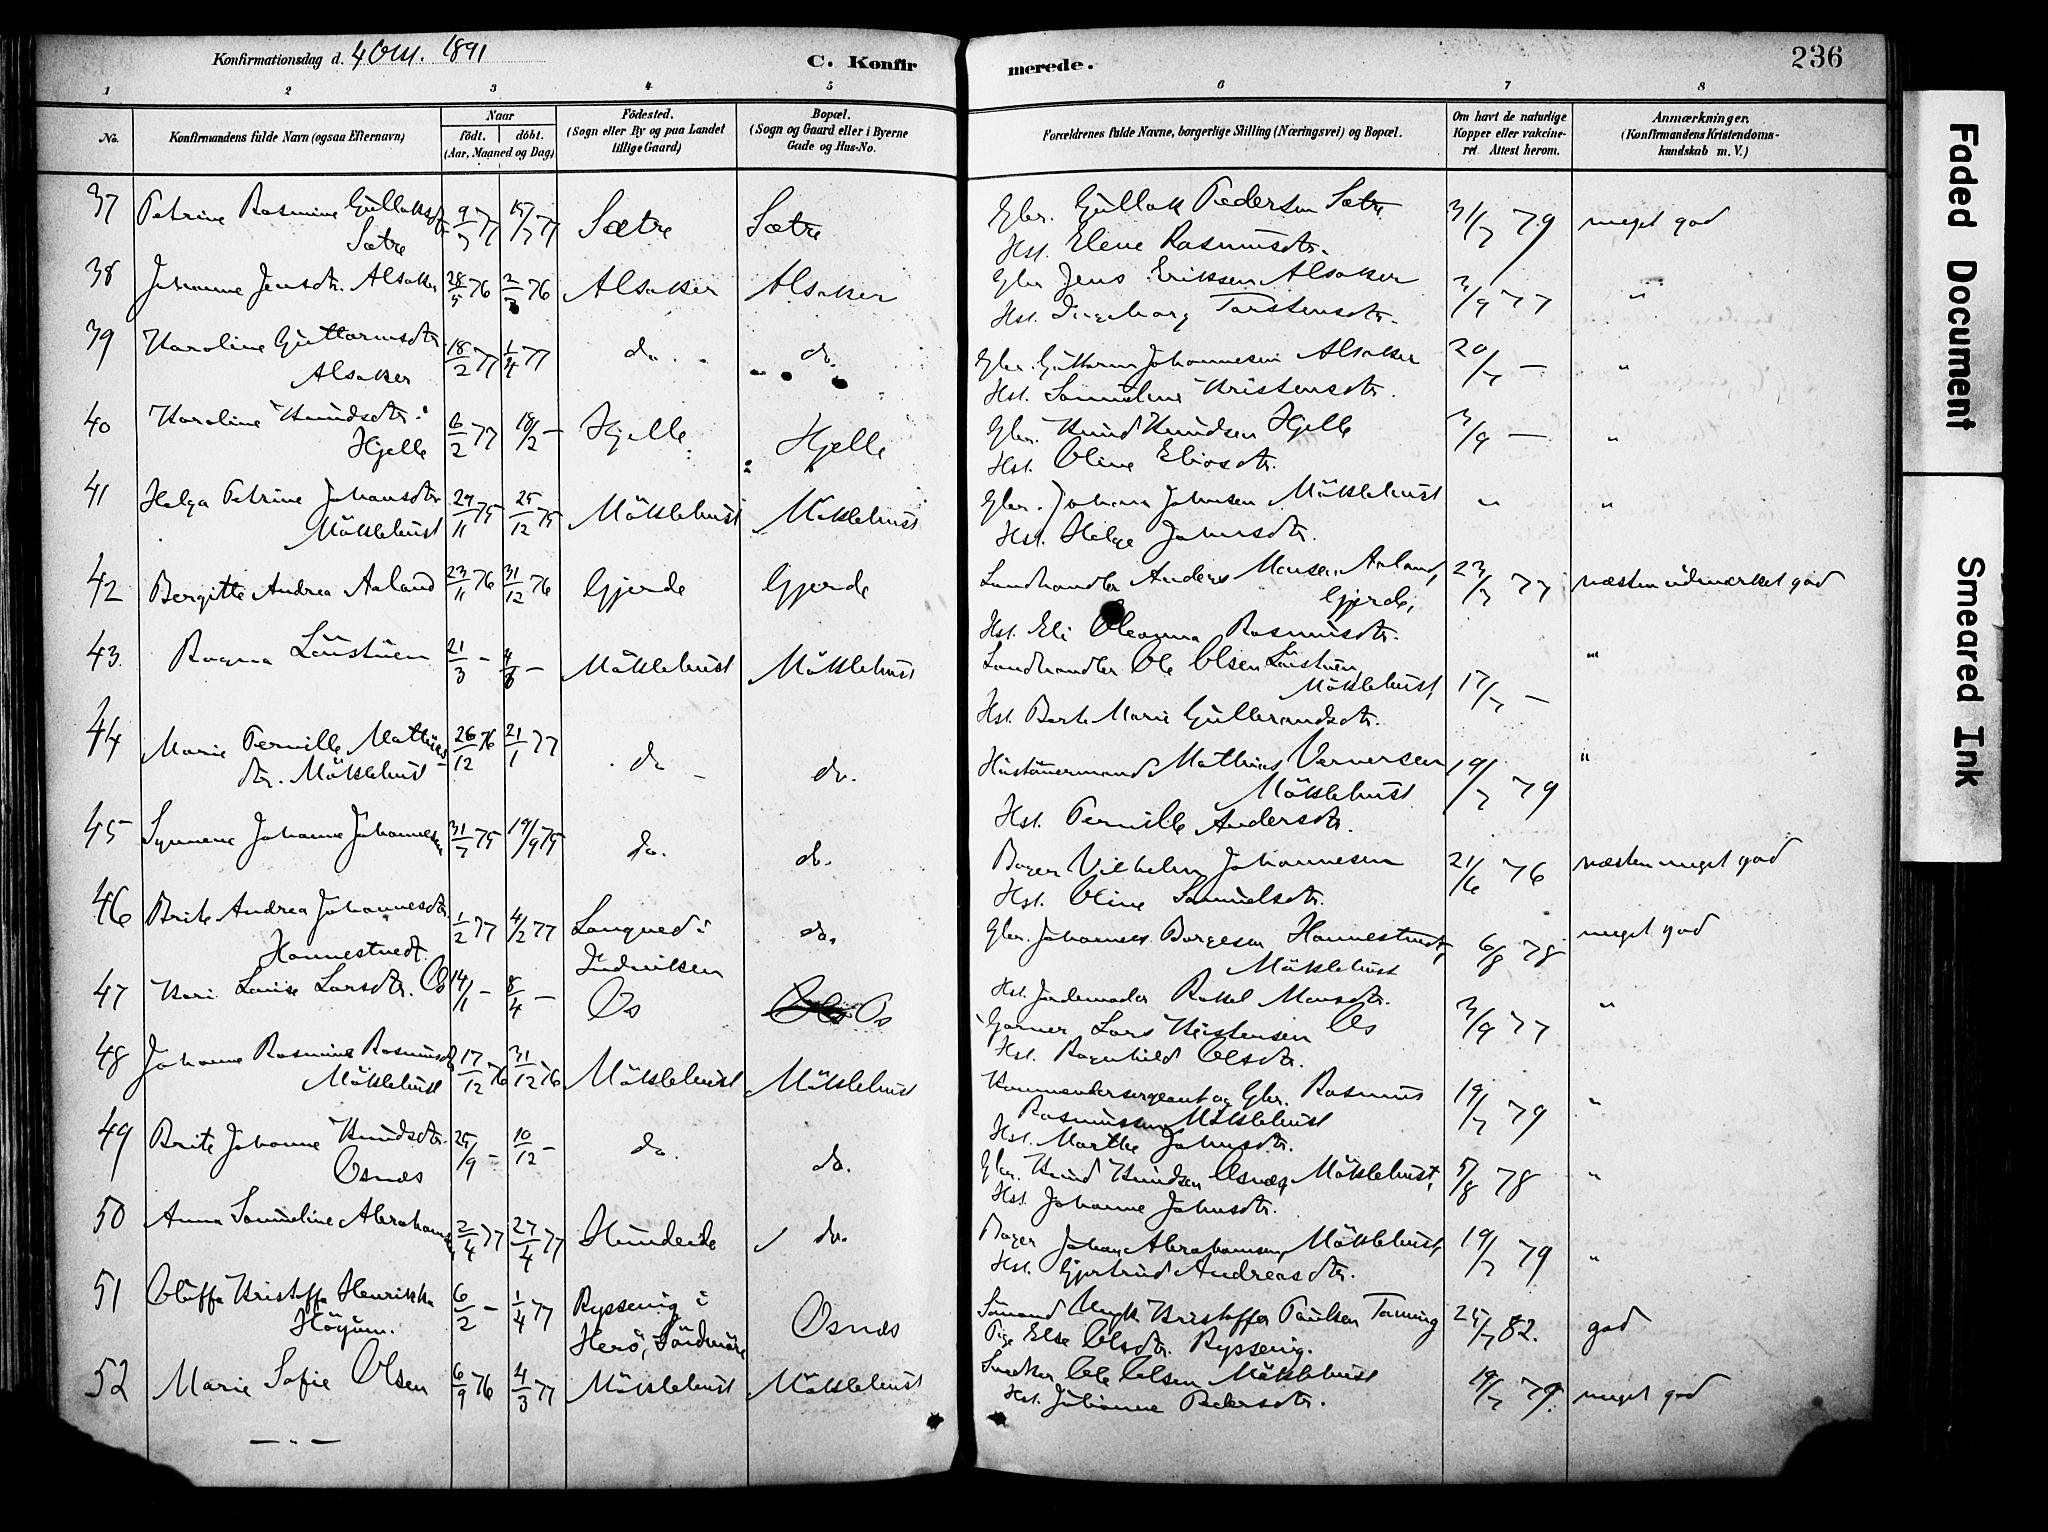 Konfirmationsdag d. 4 Okt. 1891
C. Konfirmerede.
236
1 2 3 4 5 6 7 8
No.
Konfirmandens fulde Navn (ogsaa Efternavn)
Naar
födt. döbt.
(Aar, Maaned og Dag)
Födested.
(Sogn eller By og paa Landet
tillige Gaard)
Bopæl.
(Sogn og Gaard eller i Byerne
Gade og Hus-No.
Forældrenes fulde Navne, borgerlige Stilling (Næringsvei) og Bopæl.
Om havt de naturlige
Kopper eller vakcine-
ret. Attest herom.
Anmærkninger.
(Konfirmandens Kristendoms-
kundskab m. V.)
37 Petrine Rasmine Gullaksdtr. 9/7 77 15/7 77 Sætre Sætre Gbr. Gullak Pedersen Sætre 31/7 79 meget god
Sætre Hst. Elene Rasmusdtr.
38 Johanne Jensdtr. Alsaker 28/5 76 2/7 76 Alsaker Alsaker Gbr. Jens Eriksen Alsaker 3/9 77 "
Hst. Ingeborg Torstensdtr.
39 Karoline Guttormsdtr. 18/2 77 1/4 77 do. do. Gbr. Guttorm Johannesen Alsaker 20/7 — "
Alsaker Hst. Samueline Kristensdtr.
40 Karoline Knudsdtr. 6/2 77 18/2 — Hjelle Hjelle Gbr. Knud Knudsen Hjelle 3/9 — "
Hjelle Hst. Oline Eliasdtr.
41 Helga Petrine Johansdtr. 29/11 75 25/12 75 Möklebust Möklebust Gbr. Johan Johnsen Möklebust " "
Möklebust Hst. Helge Johnsdtr.
42 Bergitte Andrea Aaland 23/11 76 31/12 76 Gjerde Gjerde Landhandler Anders Monsen Aaland, 23/7 77 næsten udmærket god
Gjerde,
Hst. Eli Oleanna Rasmusdtr.
43. Ragna Löistuen 21/3 — 4/6 — Möklebust Möklebust Landhandler Ole Olsen Löistuen "
Möklebust, 17/7 —
Hst. Berte Marie Gulbrandsdtr.
44 Marie Pernille Mathias 26/12 76 21/1 77 do do. Husmand Mathias Verversen 19/7 79 "
dtr. Möklebust Möklebust
Hst. Pernille Andersdtr.
45 Synneve Johanne Johannesen 31/7 75 19/9 75 do. do. Bager Vilhelm Johannesen 21/6 76 næsten meget god
Hst. Oline Samuelsdtr.
46 Brite Andrea Johannesdtr. 1/2 77 4/2 77 Langved i do. Gbr. Johannes Borgesen Hannestvedt, 6/8 78 meget god
Hannestvedt. Indviken Möklebust
Hst. Jordemoder Rakel Monsdtr.
47 Kari Louise Larsdtr. Os 14/1 — 8/4 — Os Os Garver Lars Kristensen Os 3/9 77 "
Hst. Ragnhild Olsdtr.
48 Johanne Rasmine Rasmusdtr. 17/12 76 31/12 76 Möklebust Möklebust Kommandersergeant og Gbr. Rasmus 19/7 79 "
Möklebust Rasmussen Möklebust
Hst. Marthe Johnsdtr.
49 Brite Johanne Knudsdtr. 25/9 — 10/12 — do. do. Gbr. Knud Knudsen Osnes, Möklebust, 5/8 78 "
Osnes Hst. Johanne Johnsdtr.
50 Anna Samueline Abrahams 2/4 77 27/4 77 Hundeide do. Bager Johan Abrahamsen, Möklebust, 19/7 79 "
Hst. Gjertrud Andreasdtr.
51 Oluffa Kristoffa Henrikka 6/2 — 1/4 77 Ryssevig i Osnes Sömand Ungk. Kristoffer Paulsen Tarning 25/7 82. god
Höyum. Herö, Söndmöre Pige Else Olsdtr. Ryssevig.
52 Marie Sofie Olsen 6/9 76 4/3 77 Möklebust Möklebust Snedker Ole Olsen Möklebust 19/7 79. meget god
Hst. Johanne Pedersdtr.
Faded Document
Smeared Ink